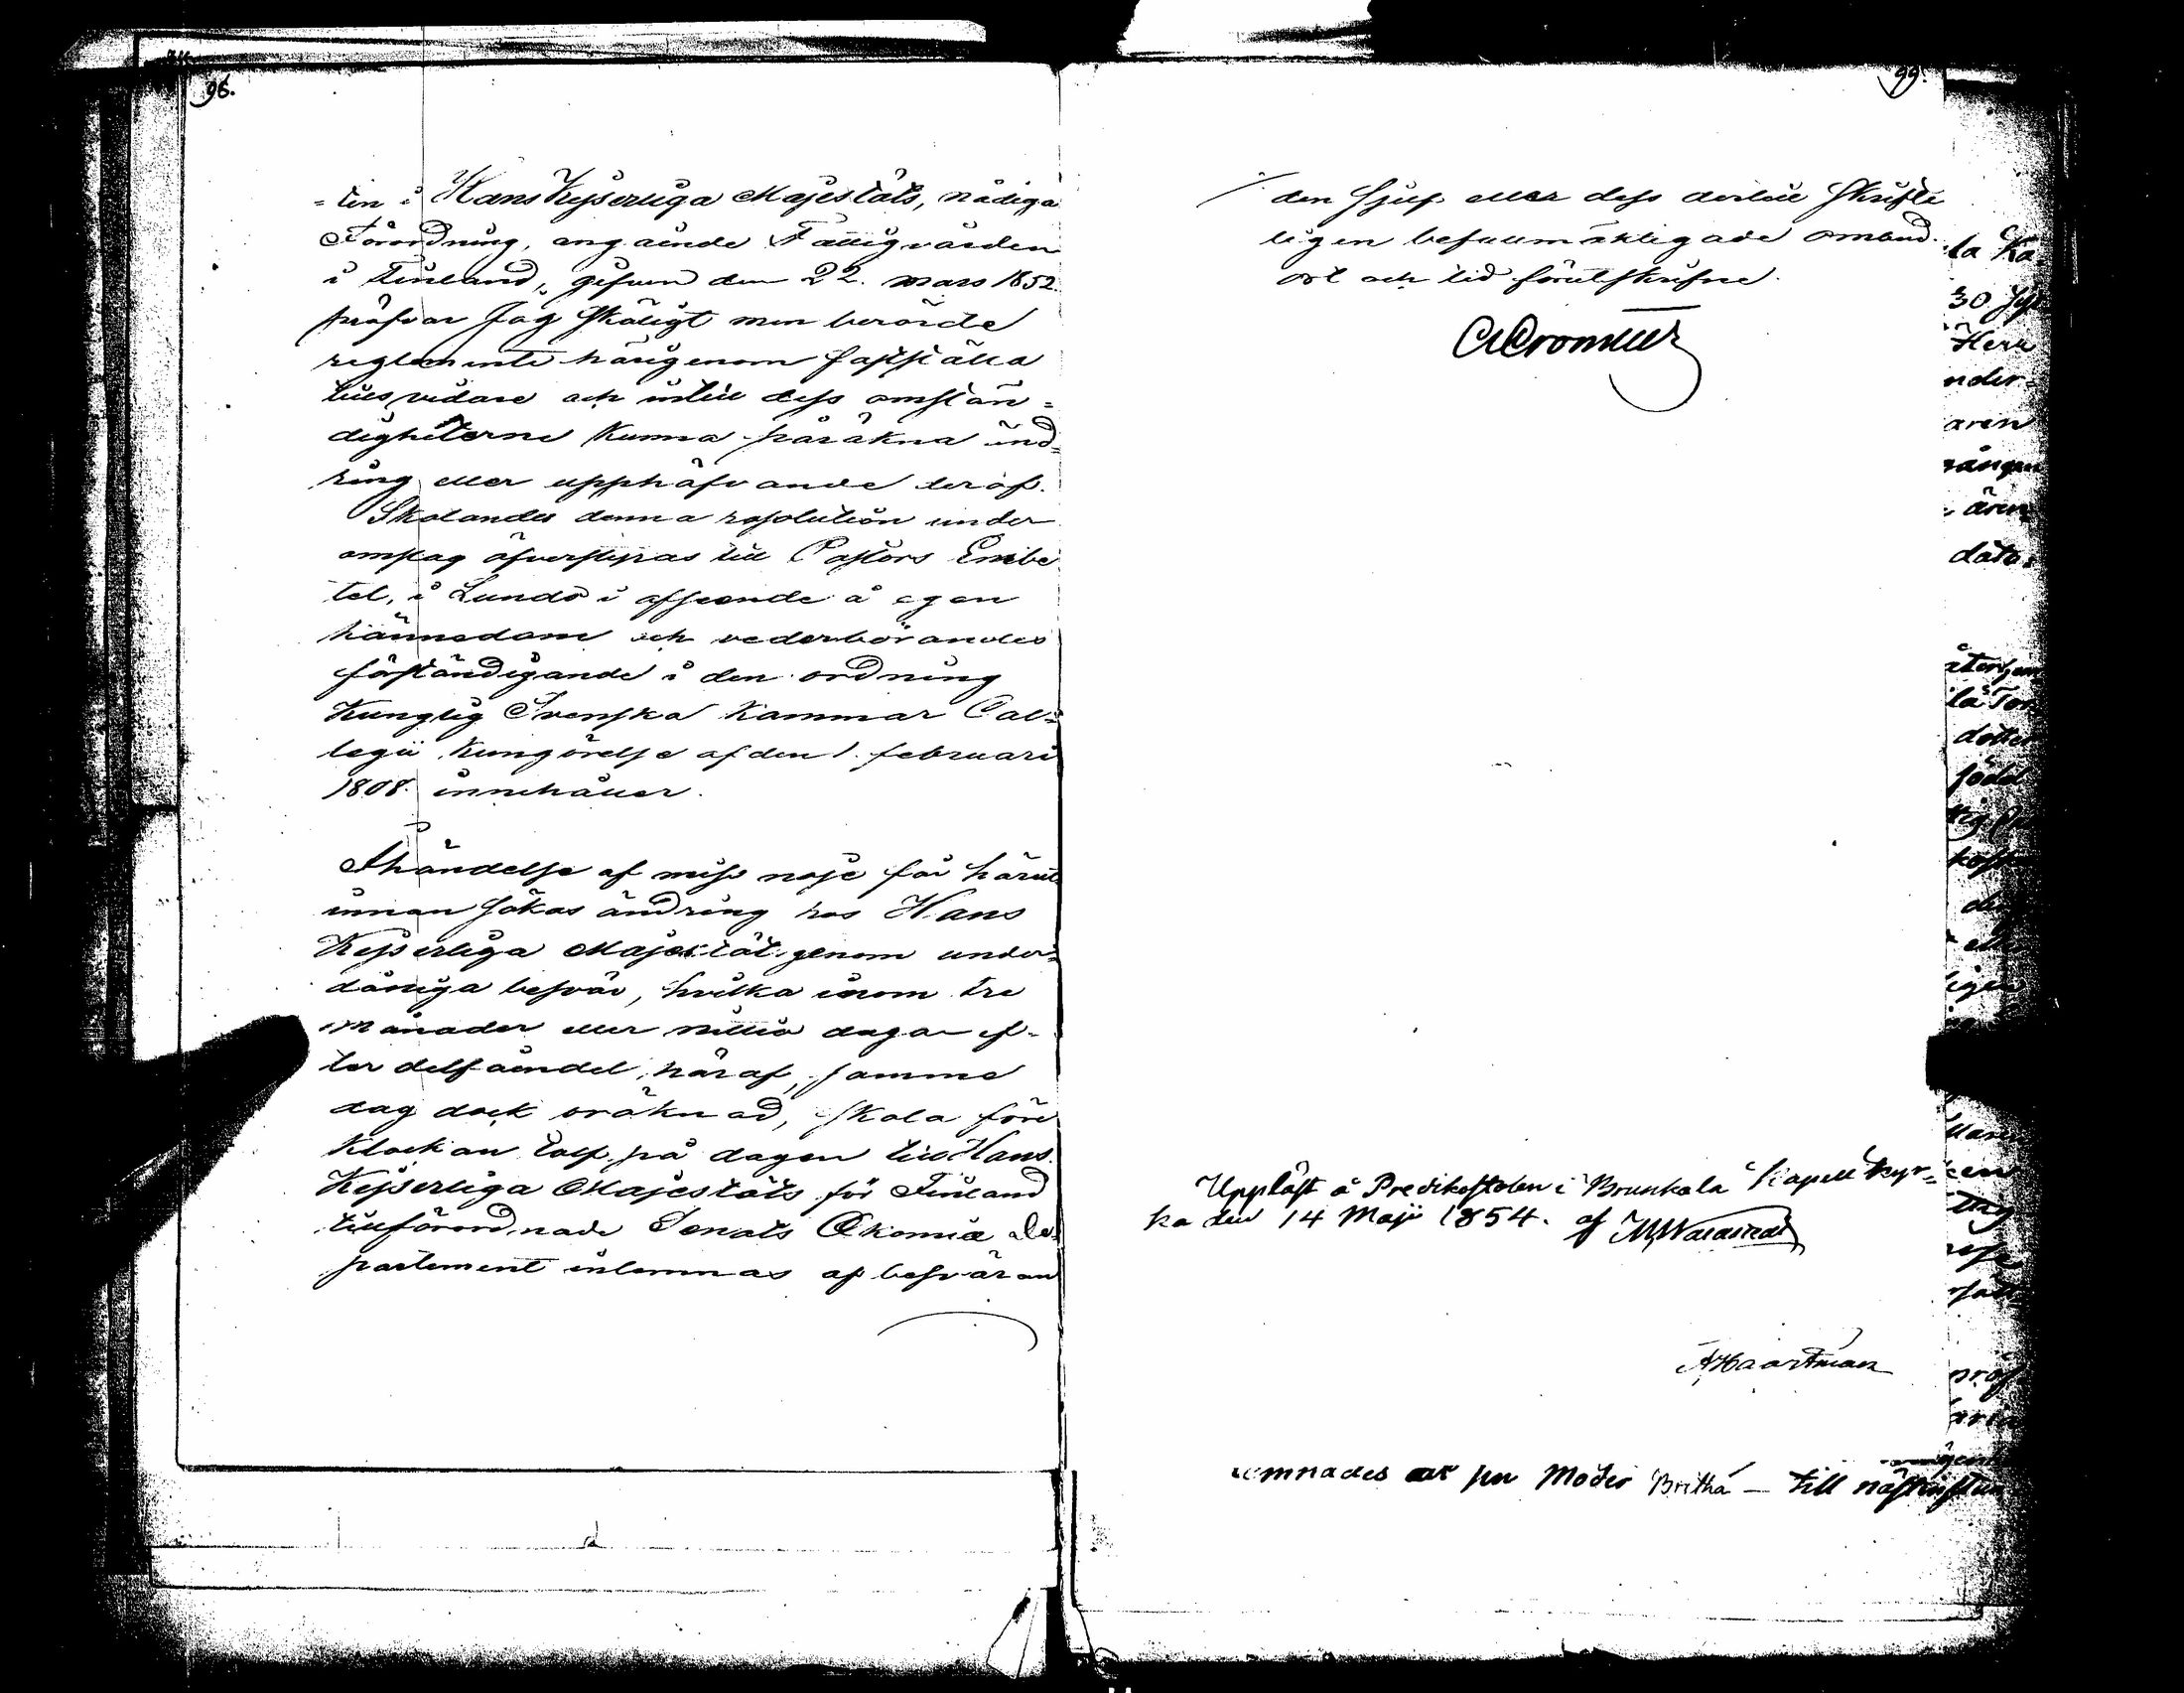 96.
=ten i Hans Kejserliga Majestäts, nådiga
Förordning, angående Fattigvården
i Finland, gifven den 22. mars 1852.
pröfvar Jag skäligt men berörde
reglemente härigenom fastställa
tills vidare och intill dess omstän=
digheterne kunna påräkna änd=
ring eller upphäfvande deraf.
Skolandes denna resolution under
omslag öfversändas till Pastors Embe
tet, i Lundo i afseende å egen
kännedom och vederbörandes
förständigande i den ordning
Kunglig Svenska Kammar Col=
legii Kungörelse af den 1. februari
1808. innehåller.
I händelse af miss nöje får härut
innan sökas ändring hos Hans
Kejserliga Majestät genom under=
dåniga besvär, hvilka inom tre
månader eller nittio dagar ef=
ter delfåendet, häraf, samma
dag dock oräknad, skola före
klockan tolf på dagen till Hans
Kejserliga Majestäts för Finland
tillförordnade Senats Œkonomie De=
partement inlemnas af besväran
99.
den sjelf eller dess dertill skrifte
ligen befullmäktigade ombud.
ort och tid förutskrifne.
Uppläst å Predikostolen i Brunkala Kapell kyr=
ka den 14 Maji 1854. af
AHaartman
emnades per Moder Britha — till
la Ka
30
Herr
nder=
aren
ären
dato
dotter
född